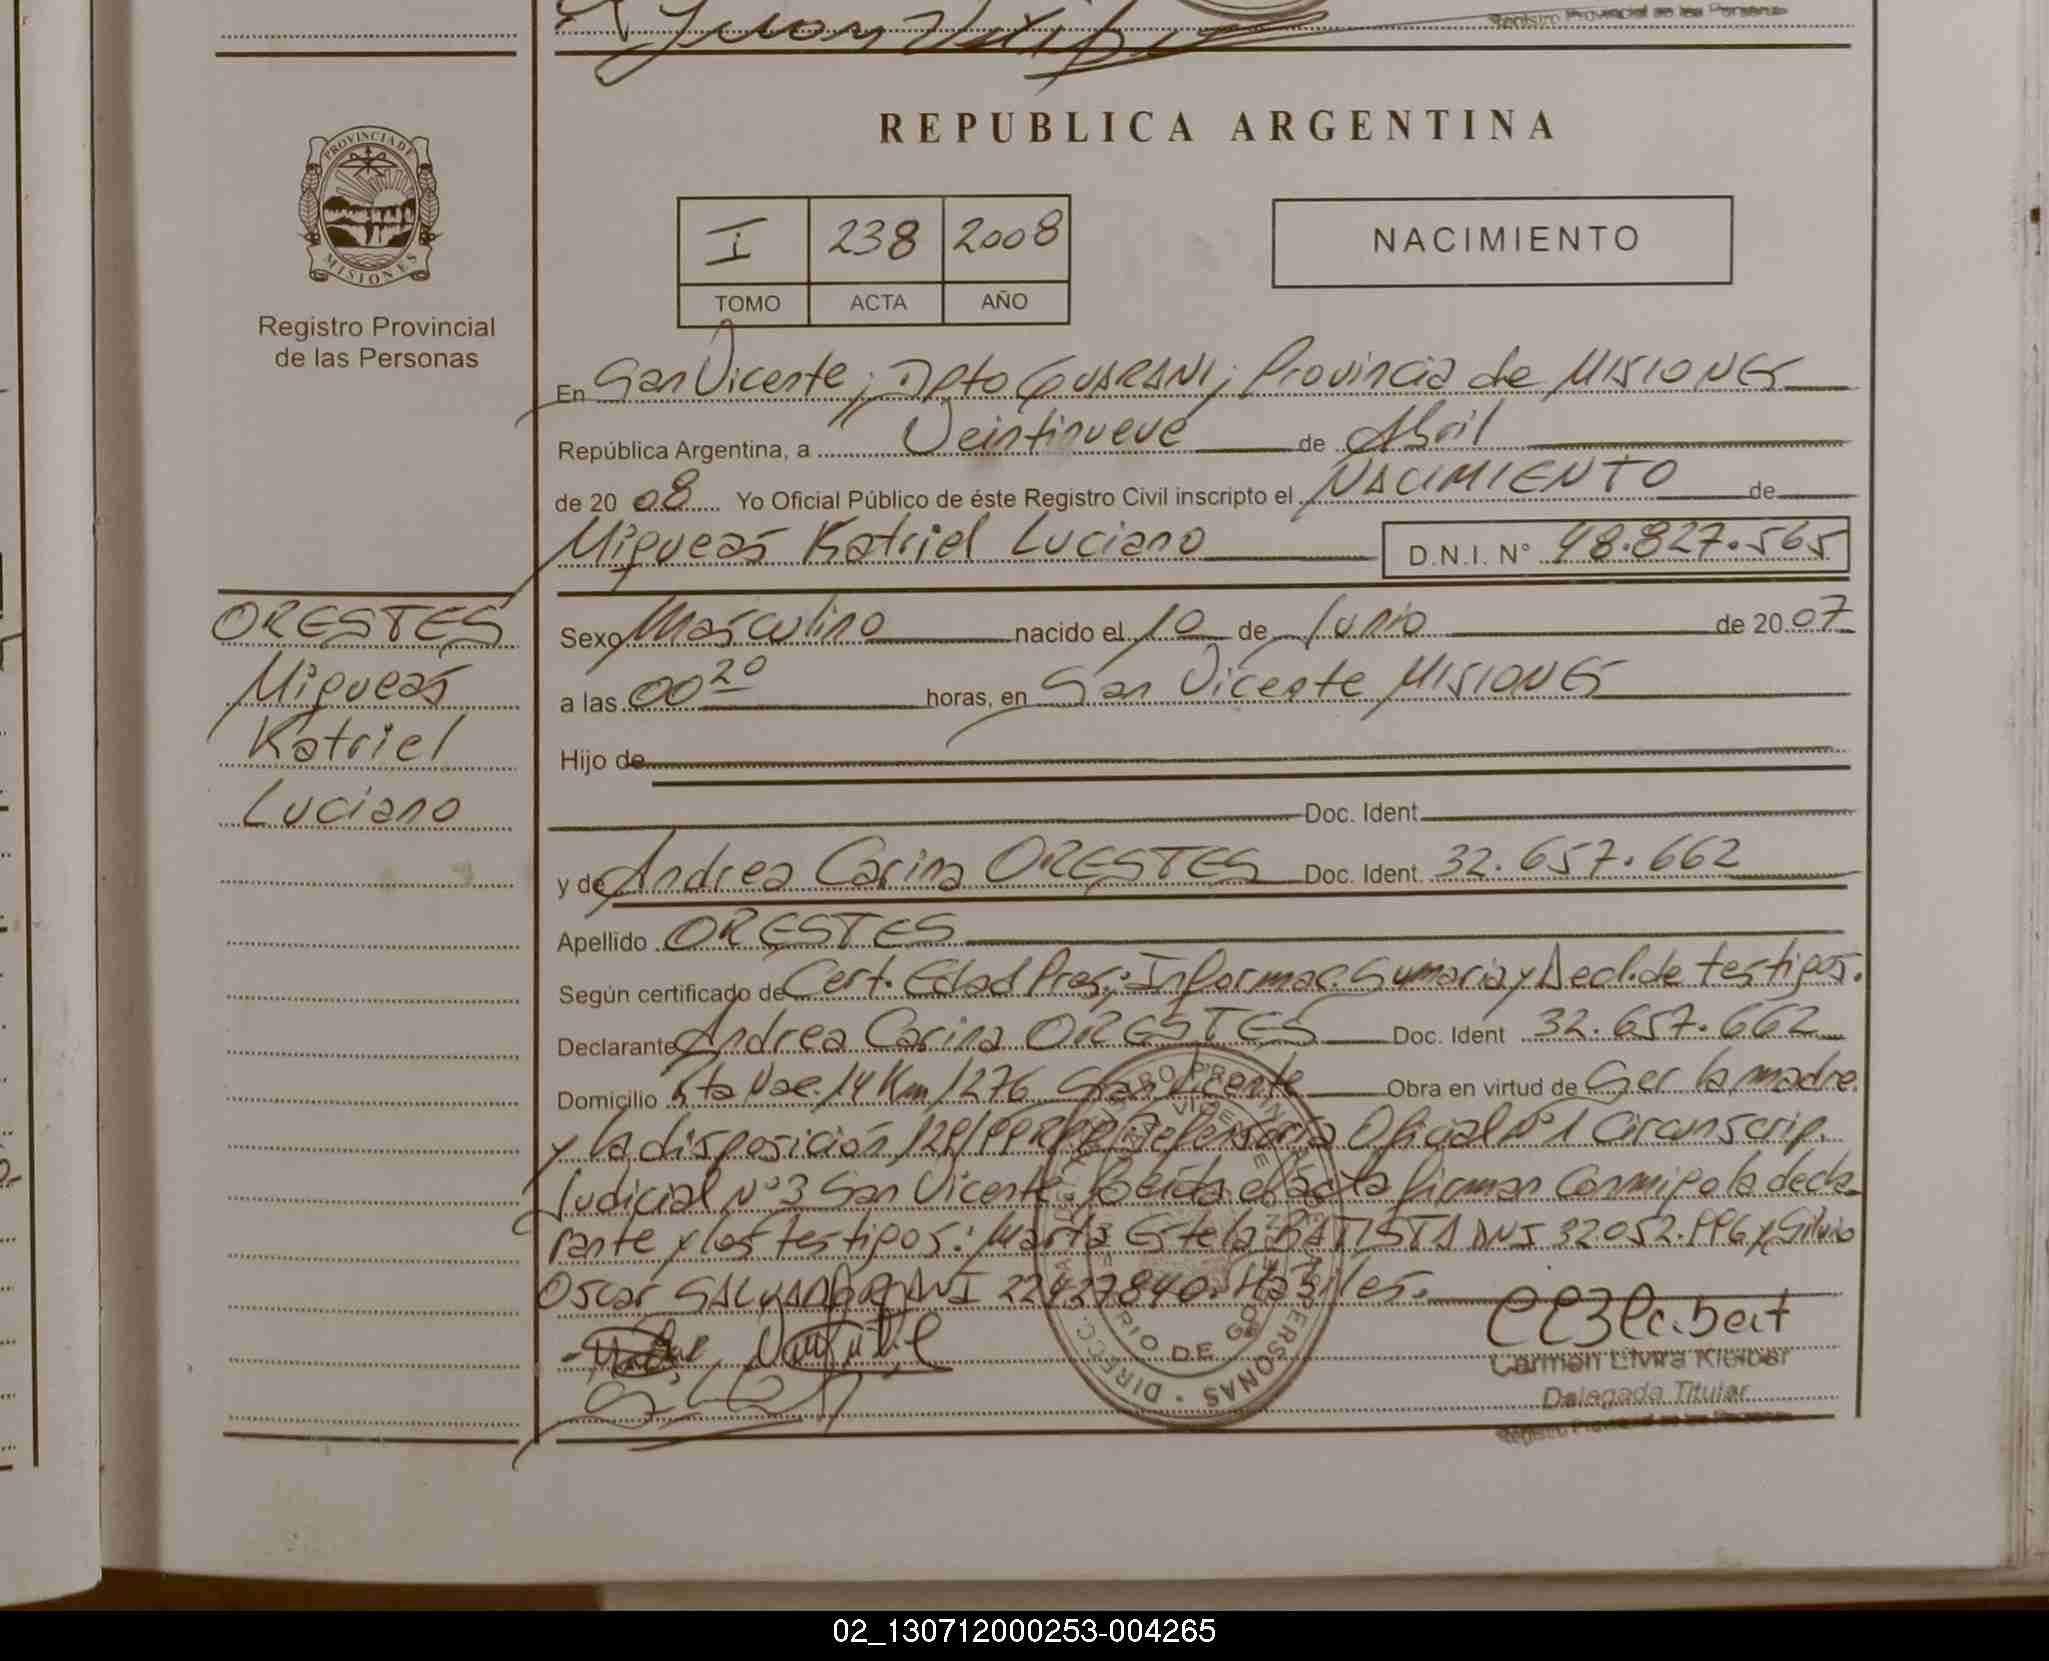 Registro Provincial de las Personas
REPUBLICA ARGENTINA
PROVINCIA DE
MISIONES
Registro Provincial
de las Personas
I 238 2008
TOMO ACTA AÑO
NACIMIENTO
En San Vicente, Dpto GUARANI, Provincia de MISIONES
República Argentina, a Veintinueve de Abril
de 20 08 Yo Oficial Público de éste Registro Civil inscripto el NACIMIENTO de
Miqueas Katriel Luciano D.N.I. N° 48.827.565
ORESTES
Miqueas
Katriel
Luciano
Sexo Masculino nacido el 10 de Junio de 20 07
a las 00 20 horas, en San Vicente MISIONES
Hijo de
Doc. Ident.
y de Andrea Carina ORESTES Doc. Ident. 32.657.662
Apellido ORESTES
Según certificado de Cert. Edad Pres., Informac. Sumaria y Decl. de testigos.
Declarante Andrea Carina ORESTES Doc. Ident 32.657.662
Domicilio Rta Nac. 14 Km 1276 San Vicente Obra en virtud de Ser la madre
y la disposición Defensoria Oficial N°1 Circunscrip.
Judicial N°3 San Vicente Leida el acta firman Conmigo la decla
rante y los testigos: Marta Estela BATISTA DNI 32052. y Silvio
Oscar DNI 22427840. Habiles.
Carmen Elvira Kleiber
Delegada Titular
Registro Provincial de las Personas
02_130712000253-004265